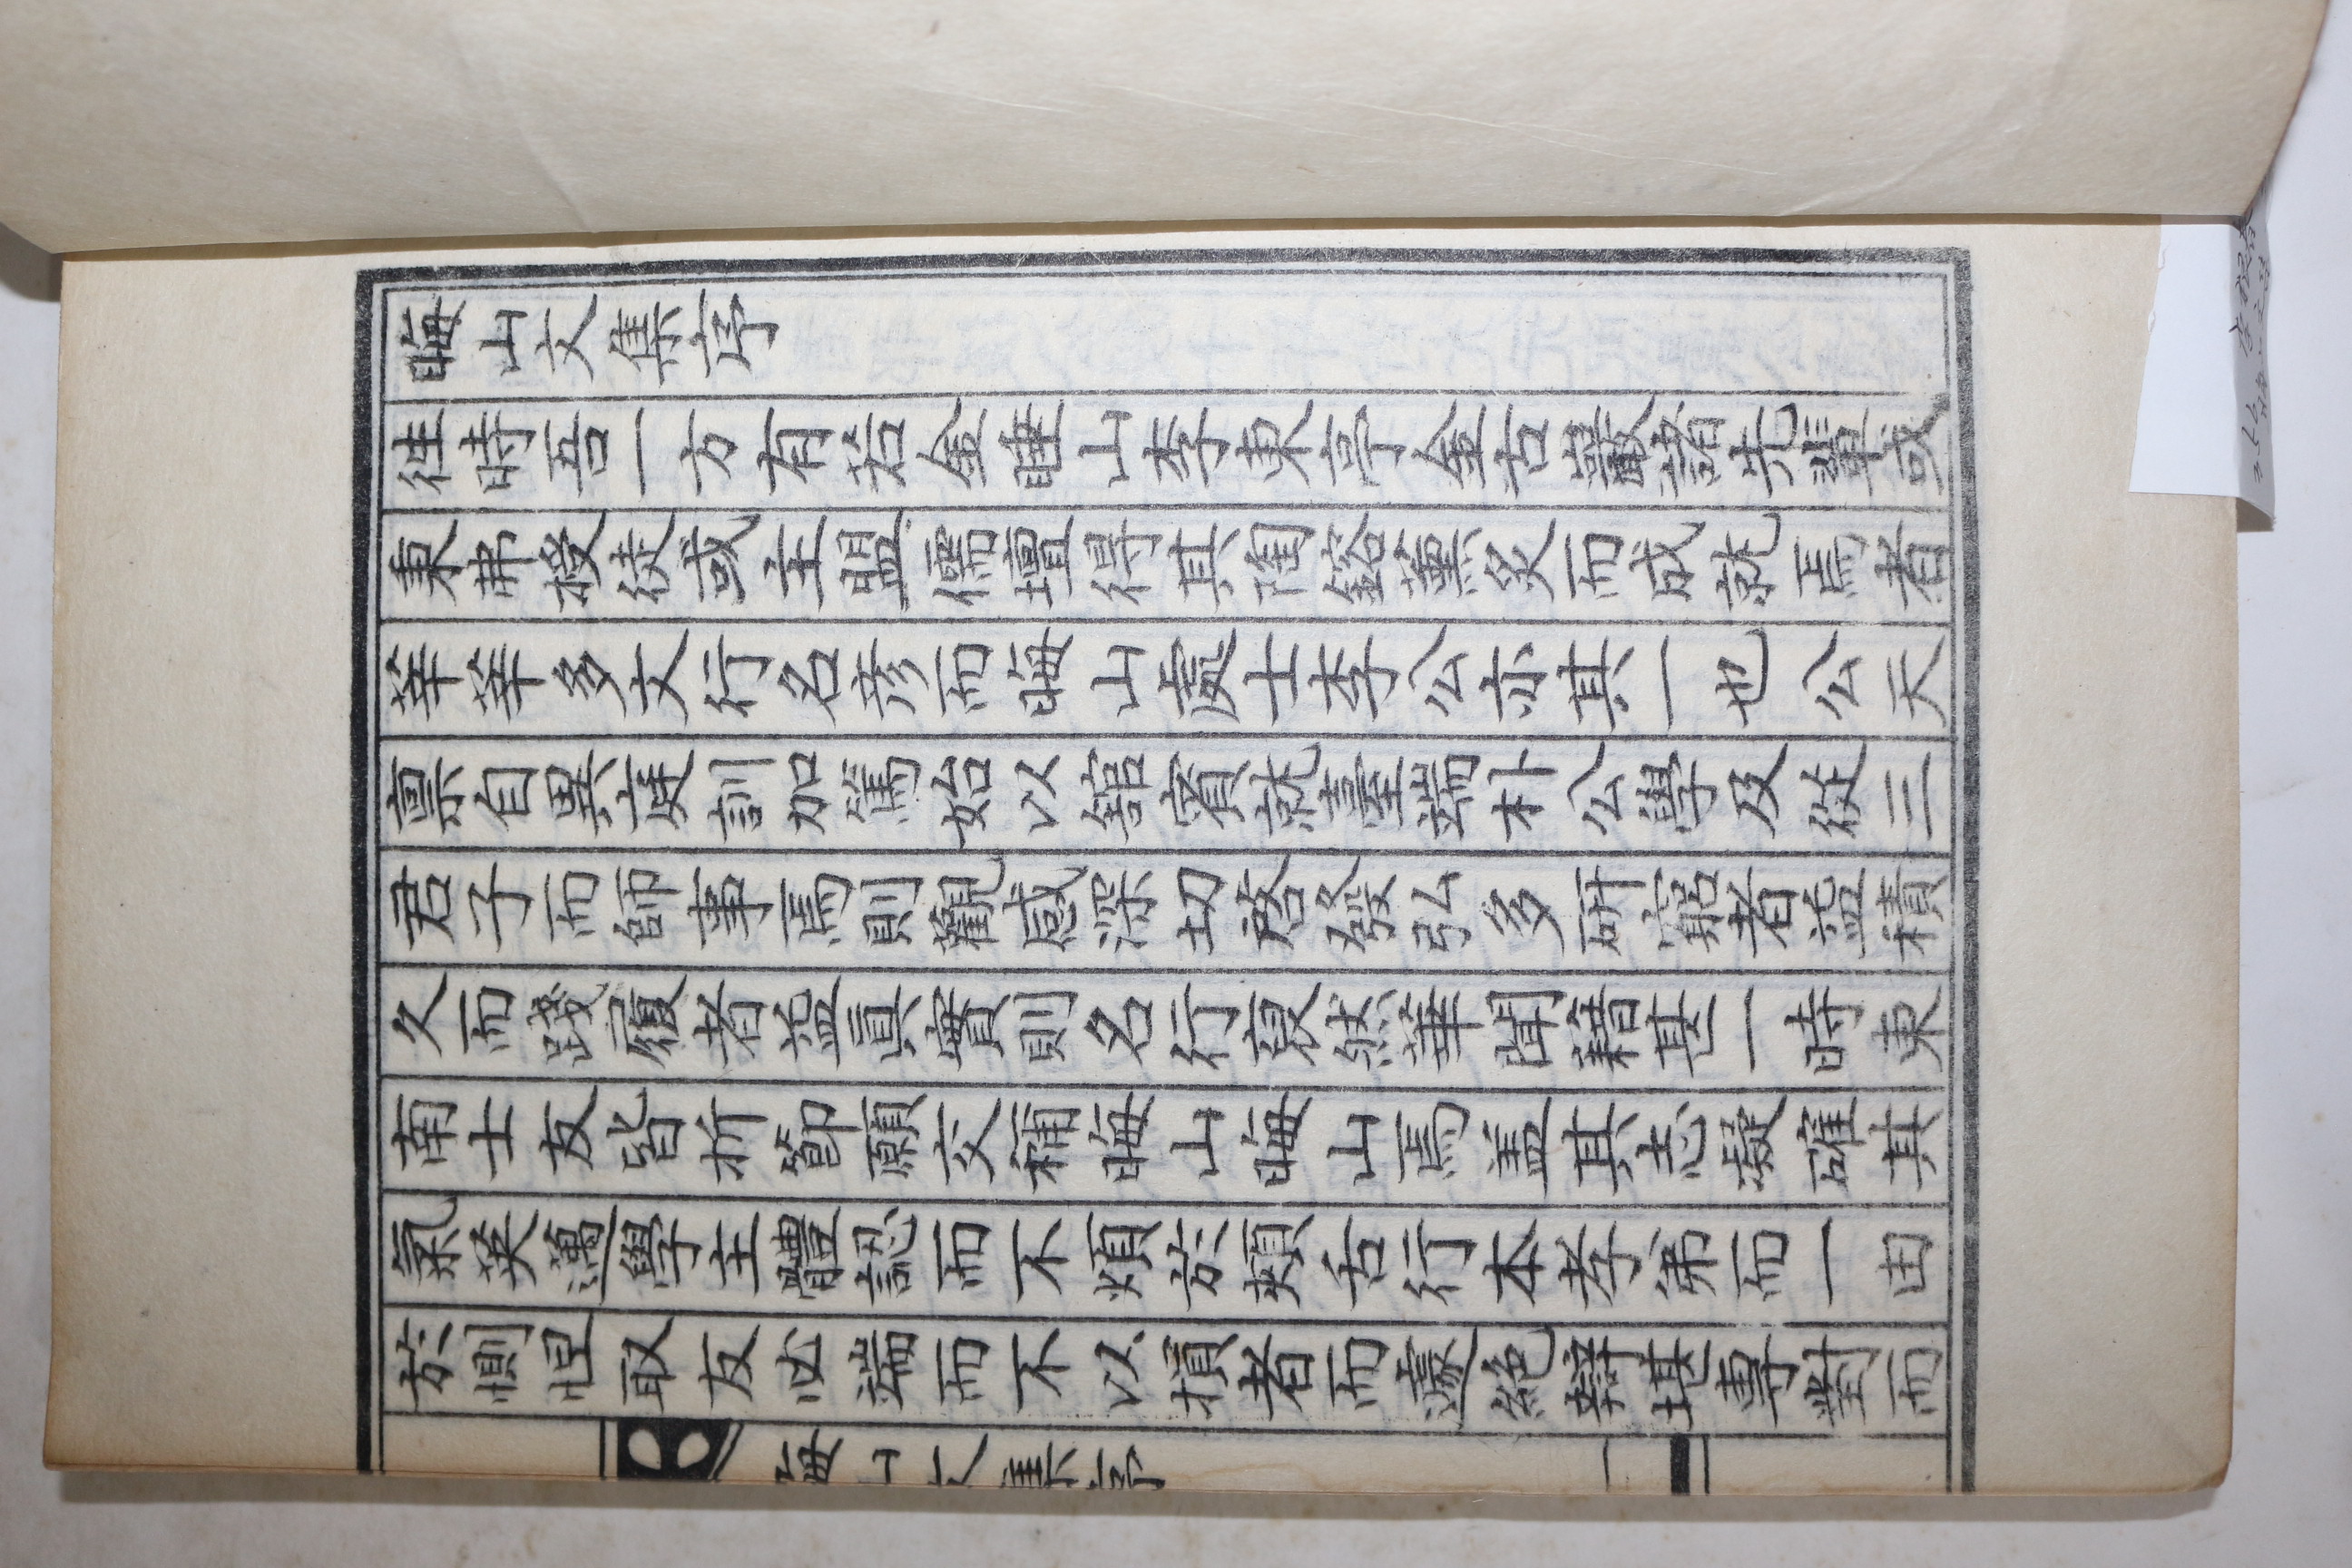 晦山文集序
徃時吾一方有若金睡山李東亭金古巖諸先輩或
秉弗授徒或主盟儒壇得其陶鎔薰炙而成就焉者
莘莘多文行名彦而晦山處士李公亦其一也公天
禀自異庭訓加篤始以舘賓就臺端朴公學及從三
君子而師事焉則觀感深切啓發弘多硏窮者益積
久而踐履者益眞實則名行裒然華聞藉甚一時東
南士友皆折節願交稱晦山晦山焉盖其志凝確其
氣英邁學主體認而不煩於頰舌行本孝弟而一由
於惻怛取友必端而不以損者而遽絶辯堪專對而
晦山文集序
一